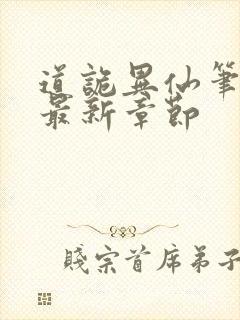 道詭異仙筆
最新章節
賤宗首席弟子